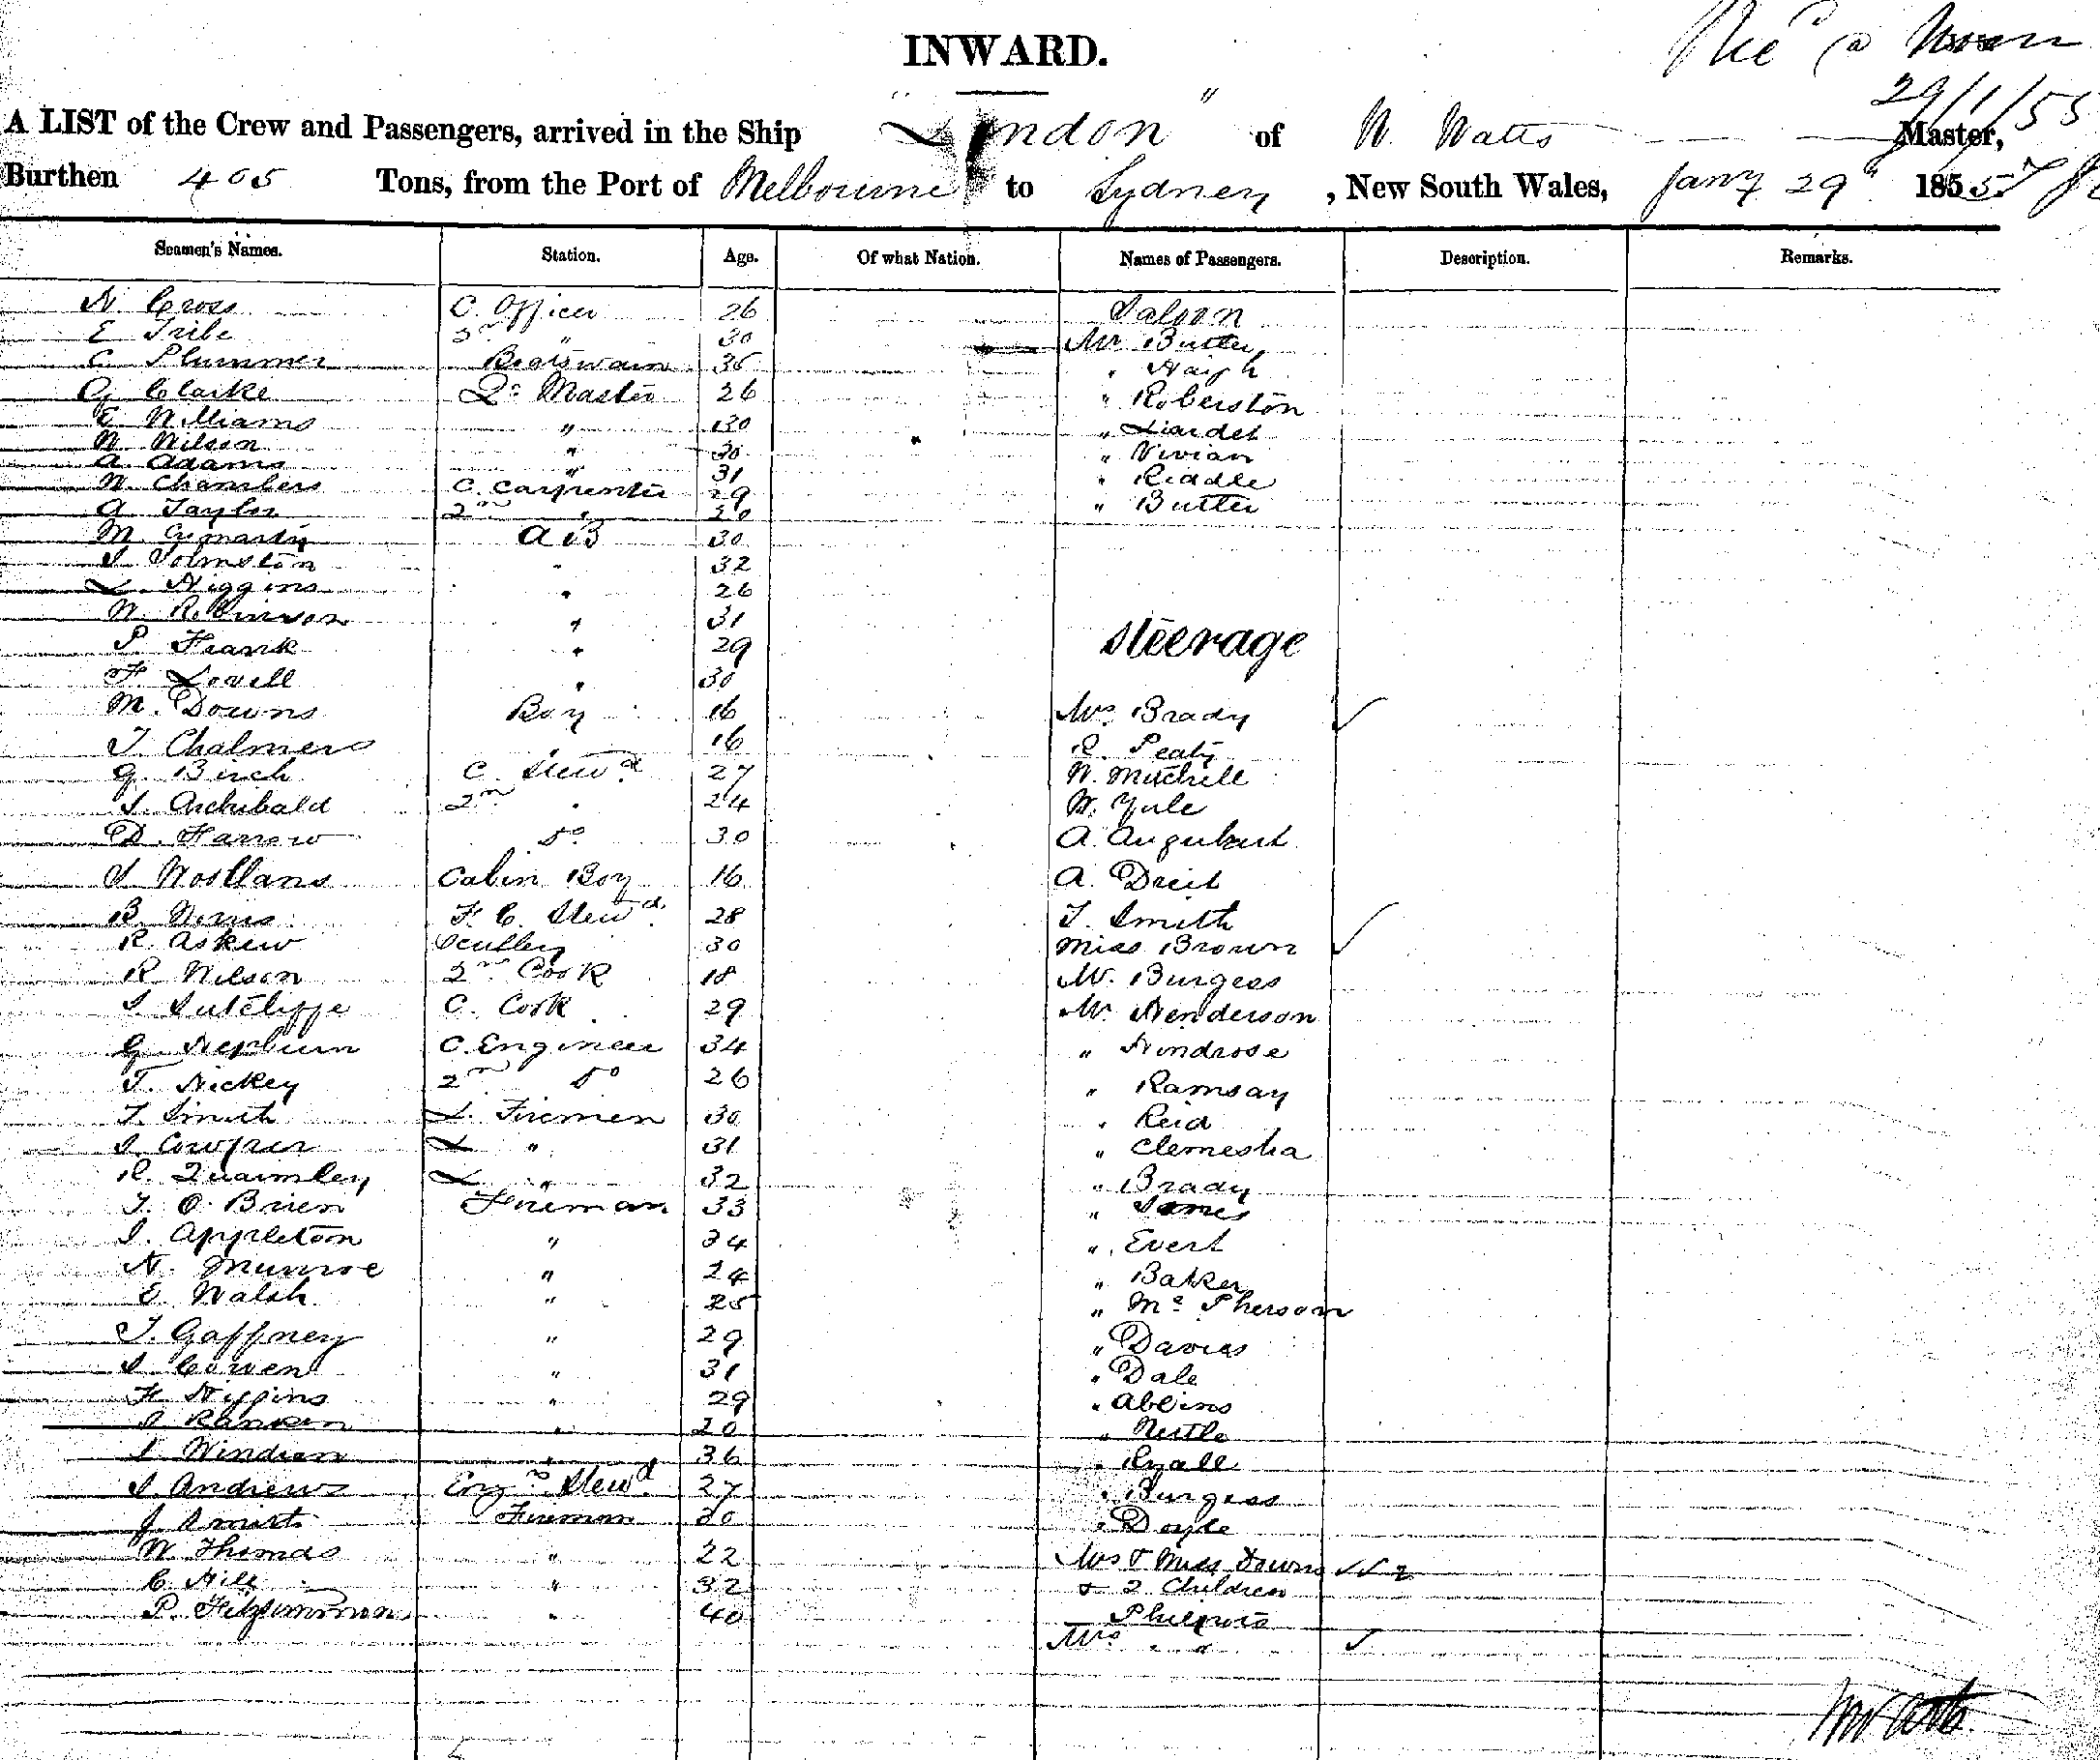 INWARD.
29/1/55
A LIST of the Crew and Passengers, arrived in the Ship "London" of W. Watts Master,
Burthen 405 Tons, from the Port of Melbourne to Sydney, New South Wales, Jany 29th 1855
Seamen's Names. Station. Age. Of what Nation. Names of Passengers. Description. Remarks.
H. Cross C. Officer 26 Saloon
E Tribe 2nd " 30 Mr Butter
C. Plummer Boatswain 35 " Haigh
G Clarke Qr Master 26 " Roberston
E Williams " 30 " Liardet
W Wilson " 30 " Vivian
A. Adams " 31 " Riddle
W. Chambers C. Carpenter 29 " Butter
A Taylor 2nd " 30
M. AB 30
J Johnston " 32
L. Higgins " 26
W. Robinson " 31
P. Frank " 29 Steerage
F. Lovell " 30
M. Downs Boy 16 Mrs Brady ✓
T. Chalmers 16 R. Peaty
G. Birch C. Stewd 27 W. Mitchell
J. Archibald 2nd " 24 W. Yule
D. Farrow Do 30 A.
J Cabin Boy 16 A.
B. F. C. Stewd 28 T. Smith
R. Askew Scullery 30 Miss Brown ✓
R Wilson 2nd Cook 18 Mr. Burgess
J Sutcliffe C. Cook 29 Mr Henderson
G. Hepburn C. Engineer 34 "
T. Hickey 2nd Do 26 " Ramsay
T. Smith L. Firemen 30 " Reid
J Cowper L " 31 " Clemesha
R. Quarmley L " 32 " Brady
T. O'Brien Fireman 33 " James
J. Appleton " 34 " Evert
H. Munroe " 24 " Baker
E. Walsh " 25 " McPherson
T. Gaffney " 29 " Davies
J Cowen " 31 " Dale
F. Higgins " 29 "
J Rankin " 20 "
J " 36 " Ryall
J. Andrews Engrs Stewd 27 " Burgess
J Smith Fireman 30 " Doyle
W Thomas " 22 Mrs & Miss Downs ✓✓ 2
C. Hill " 32 & 2 Children
P. Fitzsimmon " 40 Philpots
Mrs " " ✓
W Watts